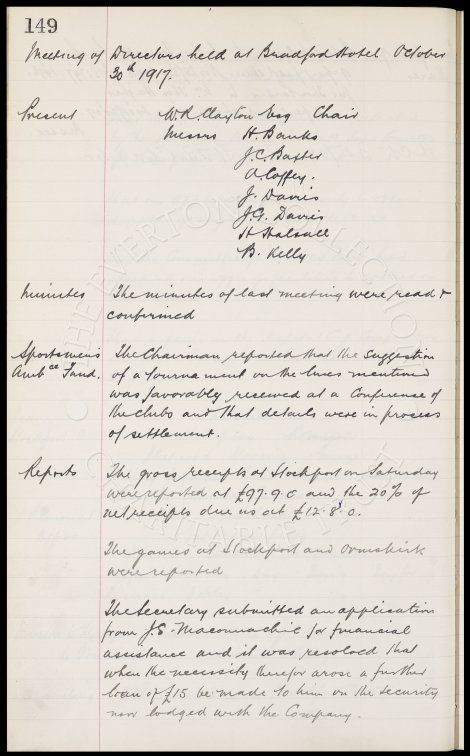 149
Meeting of Directors held at Bradford Hotel October
30th 1917.
Present W.R. Clayton Esq Chair
Messrs H. Banks
J.C. Baxter
A. Coffey.
J. Davies
J.G. Davies
H. Halsall
B. Kelly
Minutes The minutes of last meeting were read &
confirmed
Sportsmens The Chairman reported that the suggestion
Ambce Fund. of a Tournament on the lines mentioned
was favorably received at a Conference of
the clubs and that details were in process
of settlement.
Reports The gross receipts at Stockport on Saturday
were reported at £97.9.0 and the 20% of
net receipts due us at £12.8.0.
The games at Stockport and Ormskirk
were reported
The Secretary submitted an application
from J.S. Maconnachie for financial
assistance and it was resolved that
when the necessity therefor arose a further
loan of £15 be made to him on the security
now lodged with the Company.
THE EVERTON COLLECTION
CHARITABLE TRUST